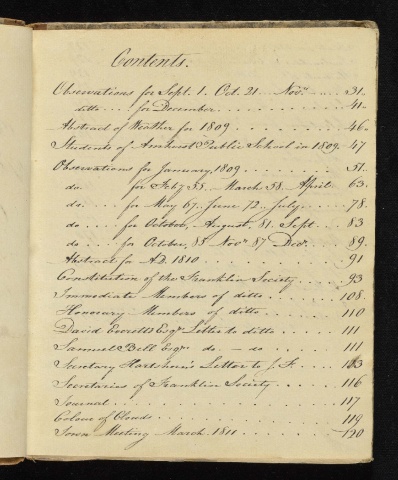 Contents.
Observations for Sept. 1. Oct. 21 Nov.r 31.
ditto for December 41.
Abstract of Weather for 1809 46.
Students of Amherst Public School in 1809. 47
Observations for January, 1809 51.
do. for Feby 55. March 58. April 63.
do. for May 67. June 72. July 78
do. for October, August, 81. Sept. 83
do. for October, 85 Novr 87 Decr. 89.
Abstract for A.D. 1810 91
Constitution of the Franklin Society 93
Immediate Members of ditto 108.
Honorary Members of ditto 110
David Everett Esqr Letter to ditto 111
Samuel Bell Esqr. do — do 111
Secretary Letter to J. F. 113
Secretaries of Franklin Society 116
Journal 117
Colour of Clouds 119
Town Meeting March 1811 120